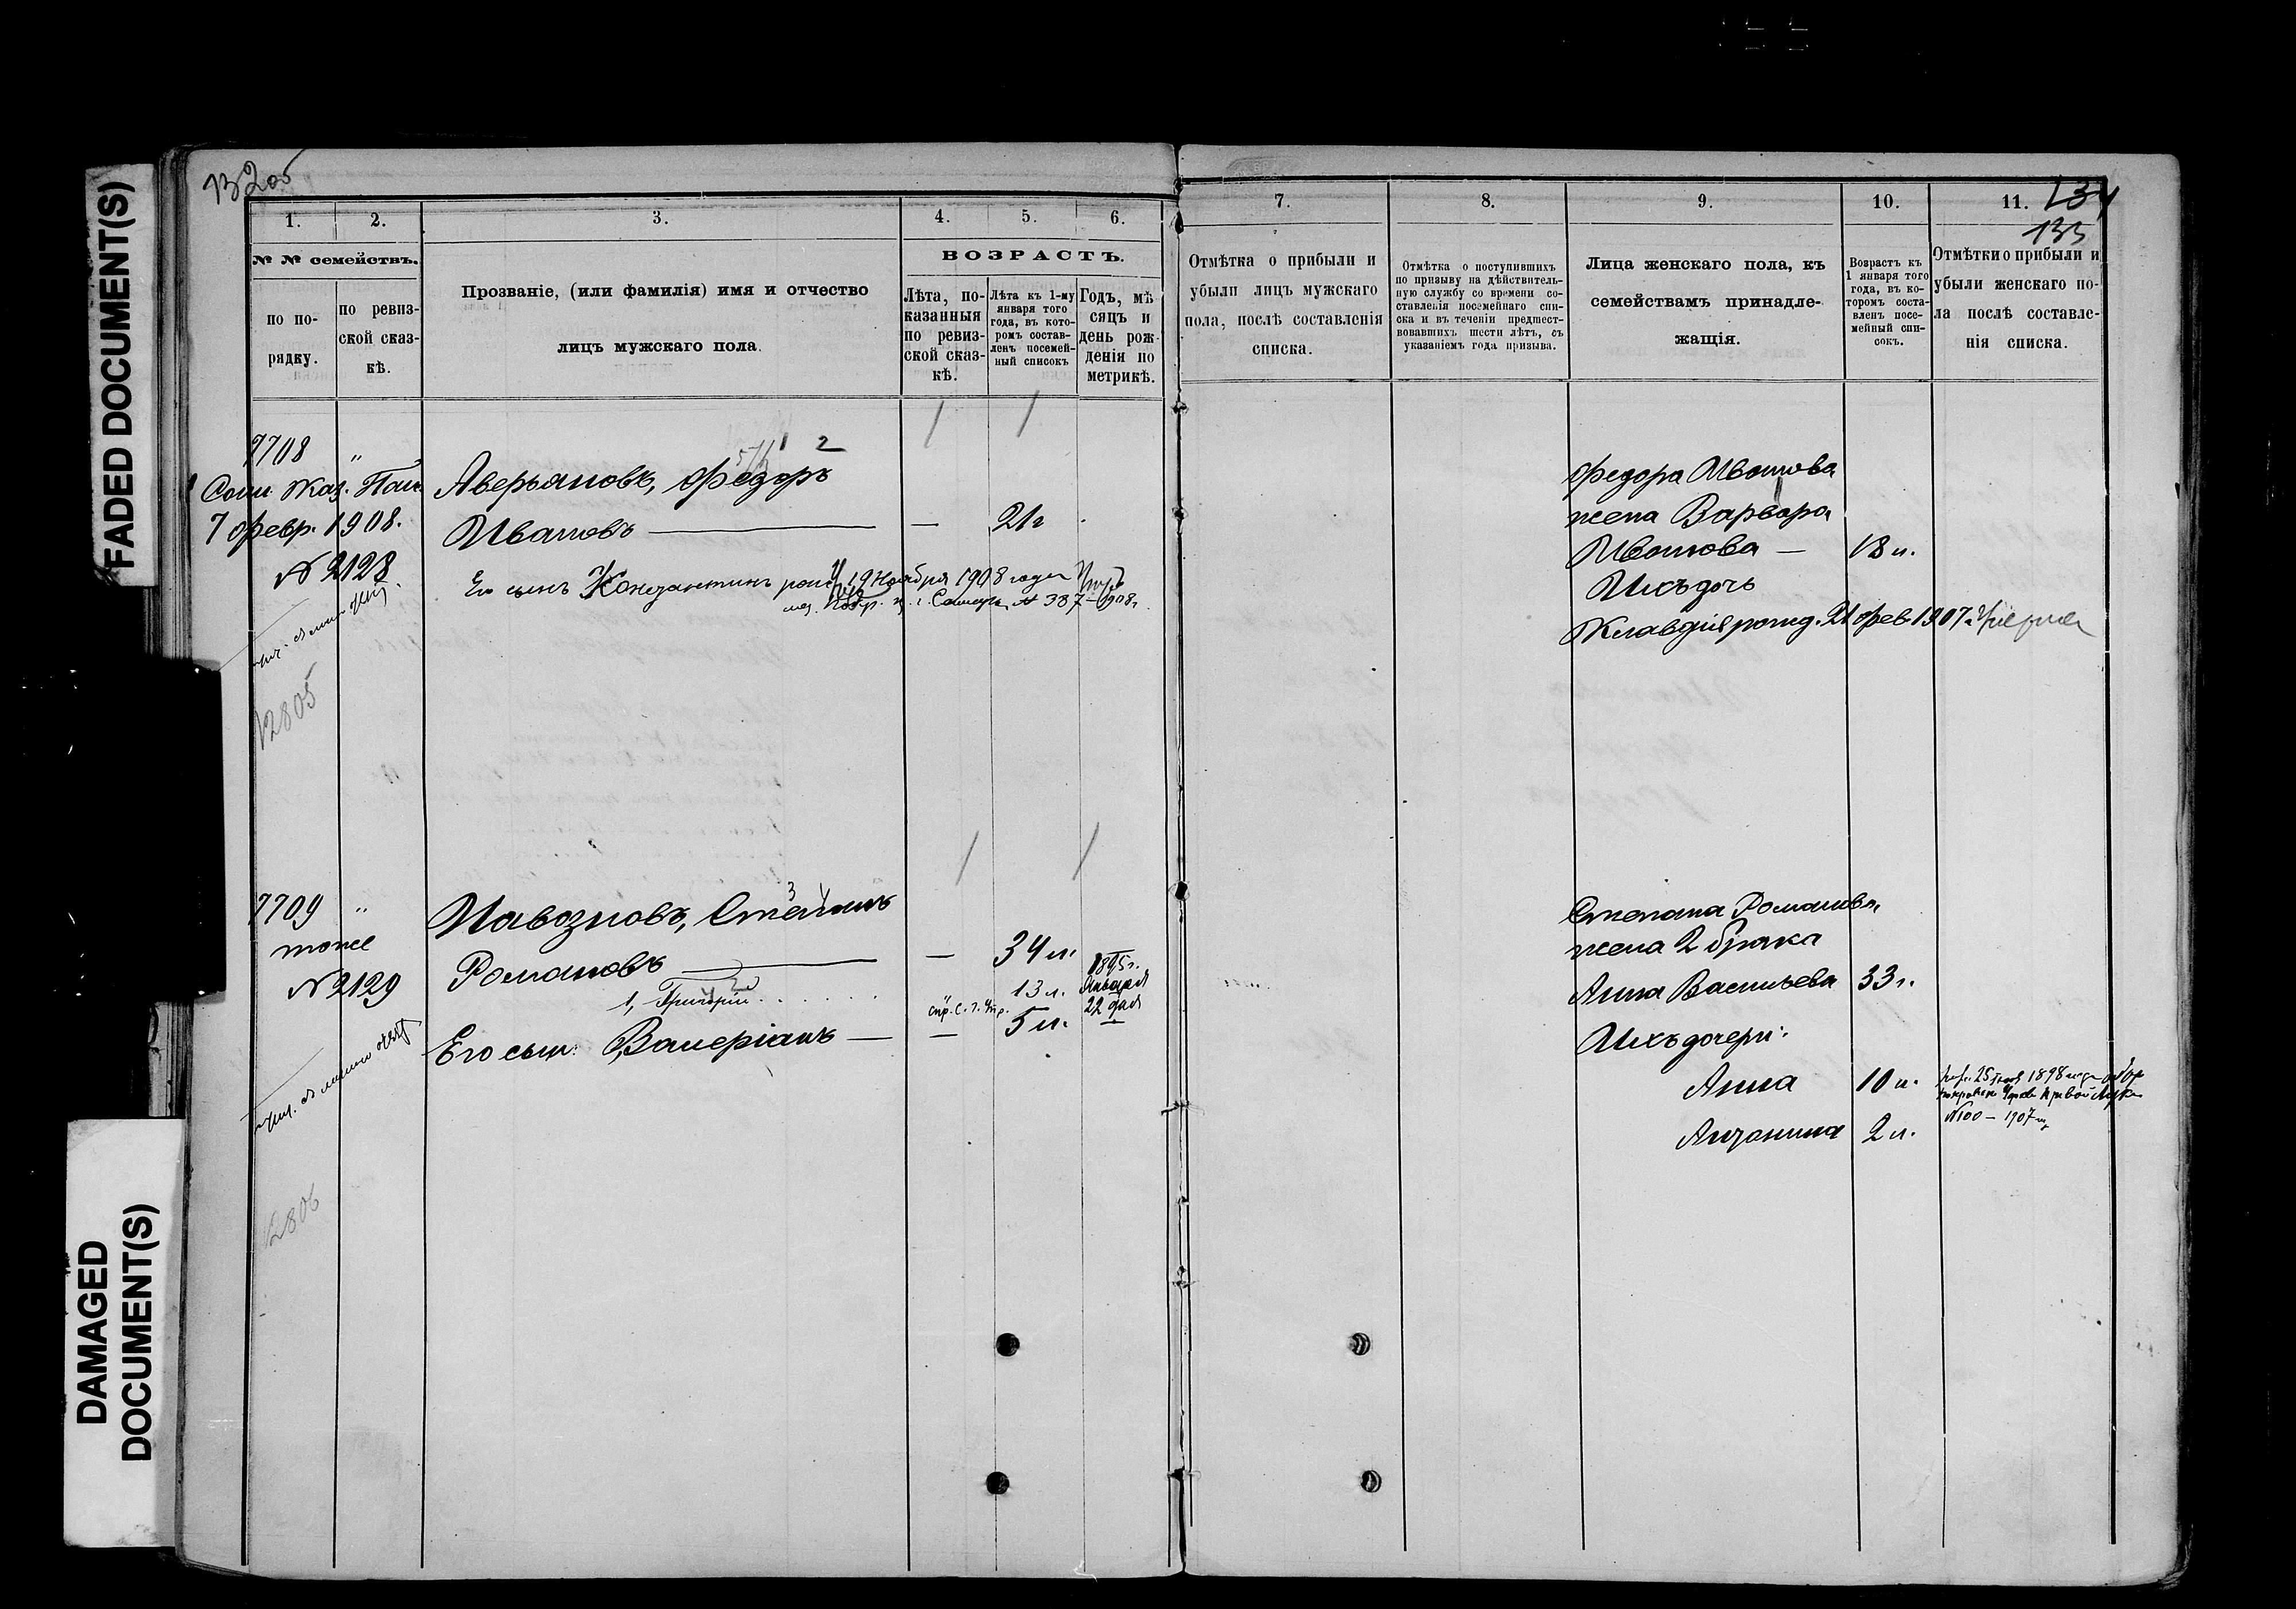 FADED DOCUMENT(S)
DAMAGED
DOCUMENT(S)
1.
2.
3.
4.
5.
6.
№ № семействъ.
по по-
рядку.
по ревиз-
ской сказ-
кѣ.
Прозваніе, (или фамилія) имя и отчество
лицъ мужскаго пола.
ВОЗРАСТЪ.
Лѣта, по-
казанныя
по ревиз-
ской сказ-
кѣ.
Лѣта къ 1-му
января того
года, въ кото-
ромъ состав-
ленъ посемей-
ный списокъ
Годъ, мѣ
сяцъ и
день рож-
денія по
метрикѣ.
7708 „
7 Февр. 1908.
№ 2128
12805
1 2
Аверьяновъ, Федоръ
Ивановъ — — 21 г
Его сынъ Константинъ 19 Ноября 1908 года
г. Самары № 387 – 1908 г.
7709 „
тоже
№ 2129
12806
3 4
Навозновъ, Степанъ
Романовъ — — 34 л.
1, Григорій 13 л. 1895 г.
Января
22 дня
Его сын. Валеріанъ — — 5 л.
7.
8.
9.
10.
11.
134
133
Отмѣтка о прибыли и
убыли лицъ мужскаго
пола, послѣ составленія
списка.
Отмѣтка о поступившихъ
по призыву на дѣйствитель-
ную службу со времени со-
ставленія посемейнаго спи-
ска и въ теченіи предшест-
вовавшихъ шести лѣтъ, съ
указаніемъ года призыва.
Лица женскаго пола, къ
семействамъ принадле-
жащія.
Возрастъ къ
1 января того
года, въ ко-
торомъ соста-
вленъ посе-
мейный спи-
сокъ.
Отмѣтки о прибыли и
убыли женскаго по-
ла послѣ составле-
нія списка.
Федора Иванова
жена Варвара
Иванова — 18 л.
Ихъ дочь
Клавдія рожд. 21 Фев 1907 г.
Степана Романова
жена 2 брака
Анна Васильева 33 г.
Ихъ дочери:
Анна 10 л.
25 1898 года
№ 100 – 1907 г.
Антонина 2 л.